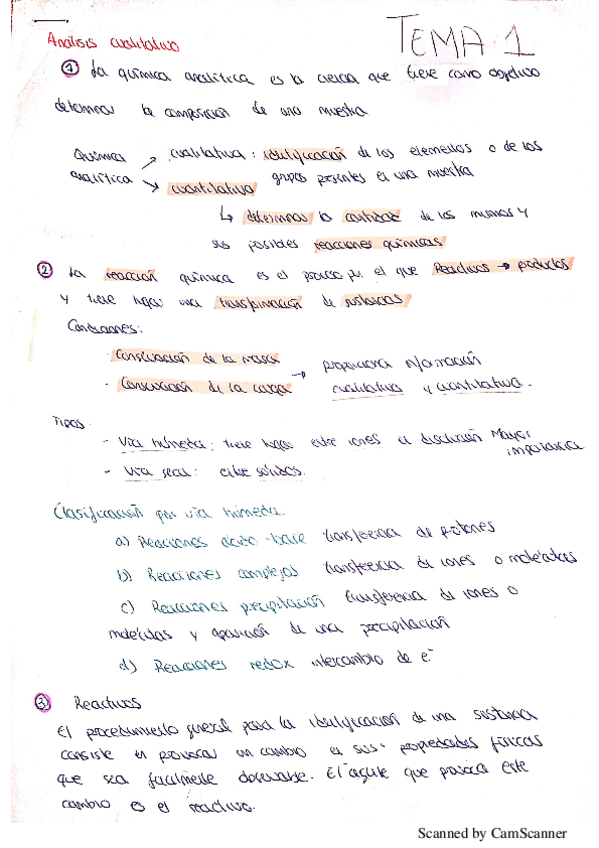 TEMA 1
Análisis cualitativo
1 La química analítica es la ciencia que tiene como objetivo
determinar la composición de una muestra
Química analítica
cualitativa: identificación de los elementos o de los
grupos presentes en una muestra
cuantitativa
↳ determinar la cantidad de los mismos y
sus posibles reacciones químicas
2 La reacción química es el proceso por el que Reactivos → productos
y tiene lugar una transformación de sustancias
Condiciones:
· Conservación de la masa
· Conservación de la carga
→ proporciona información
cualitativa y cuantitativa.
Tipos
- Vía húmeda: tiene lugar entre iones en disolución Mayor
importancia
- Vía seca: entre sólidos.
Clasificación por vía húmeda.
a) Reacciones ácido-base transferencia de protones
b) Reacciones complejos transferencia de iones o moléculas
c) Reacciones precipitación transferencia de iones o
moléculas y aparición de una precipitación
d) Reacciones redox intercambio de e⁻
3 Reactivos
El procedimiento general para la identificación de una sustancia
consiste en provocar un cambio en sus propiedades físicas
que sea facilmente observable. El agente que provoca este
cambio es el reactivo.
Scanned by CamScanner